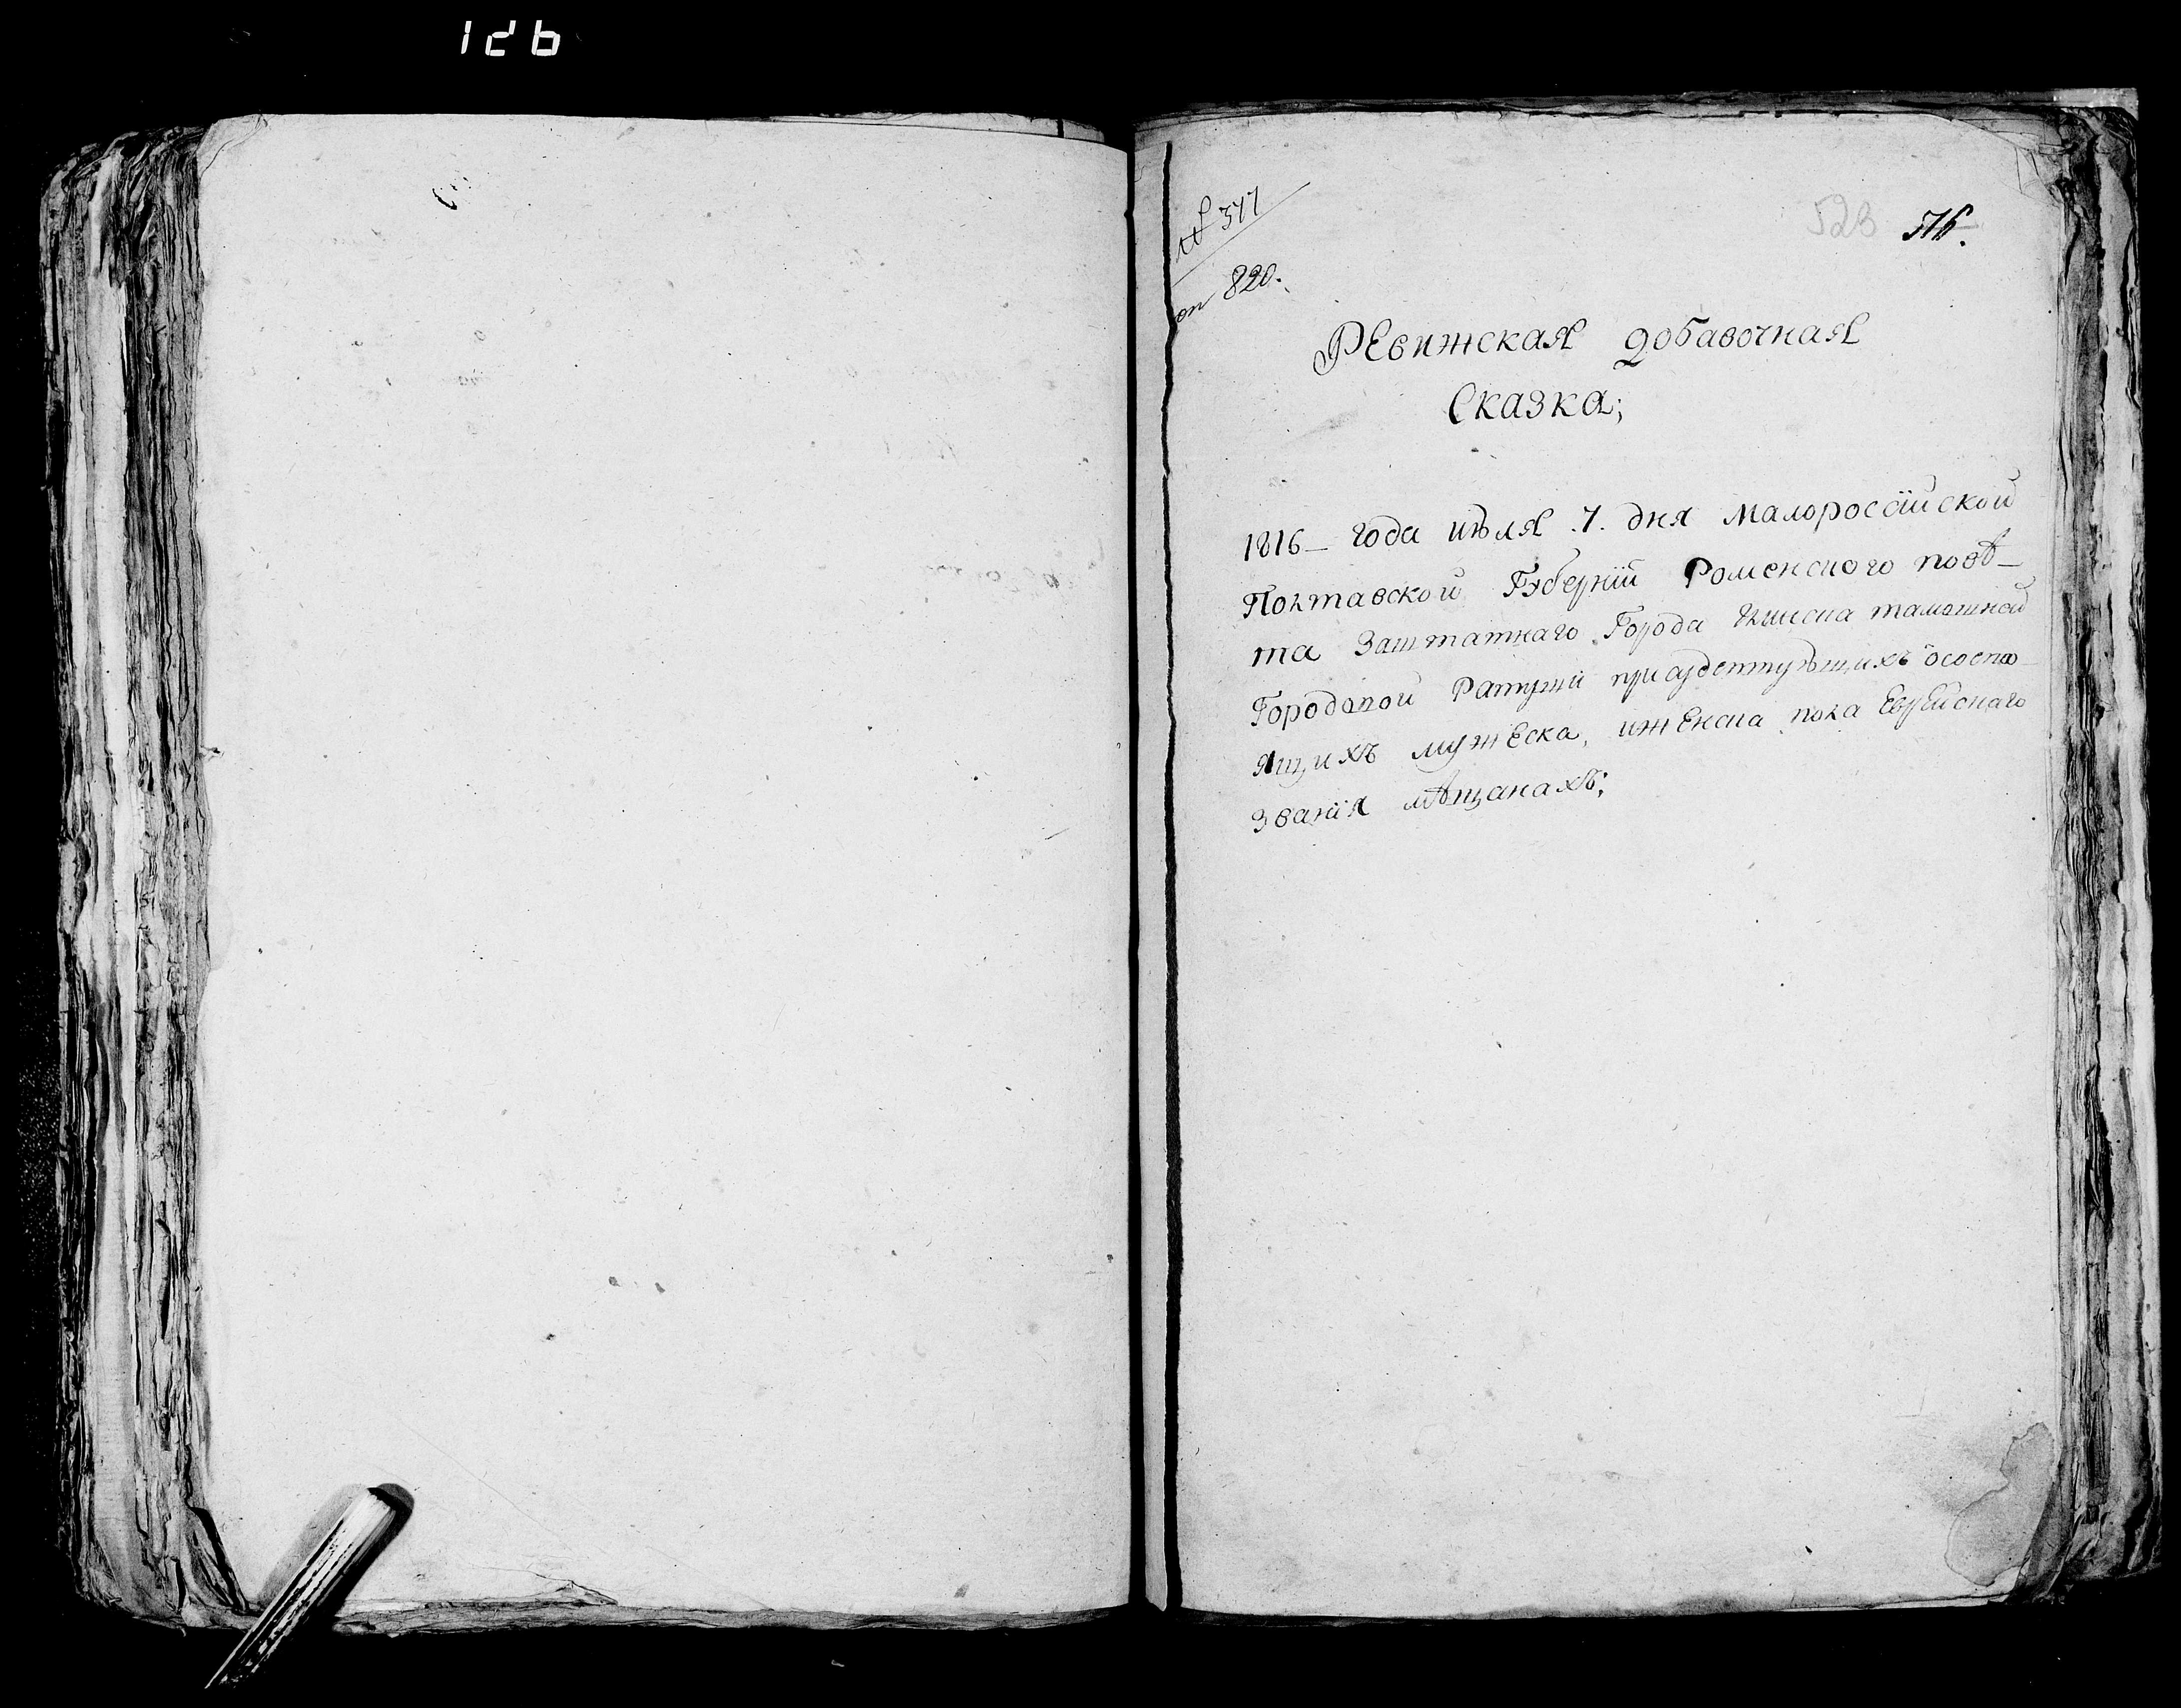 126
№ 377
on 820.
523 516.
Ревижская добавочная
Сказка;
1816 – года июля .7. дня Малороссїйской
Полтавской Губернїи Роменского повѣ–
та Заштатнаго Города Глинска тамошней
Городовой Ратуши присудствующихъ осостоя–
ящихъ мужеска, иженска пола Еврейскаго
званїя мѣщанахъ;